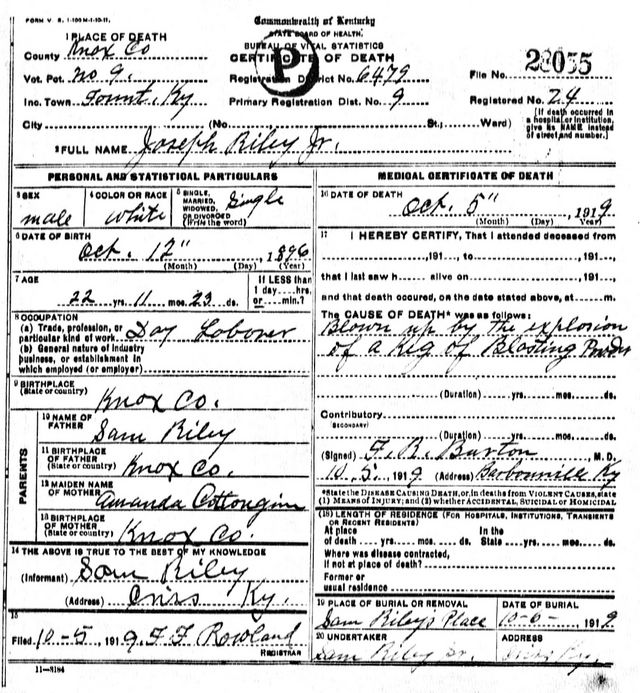 FORM V. S. 1-100M-1-10-11.
Commonwealth of Kentucky
STATE BOARD OF HEALTH.
BUREAU OF VITAL STATISTICS
CERTIFICATE OF DEATH
P
1 PLACE OF DEATH
County Knox Co
Vot. Pct. No 9.
Inc. Town Fount, Ky
Registration District No. 6479
Primary Registration Dist. No. 9
File No. 28055
Registered No. 24
[If death occurred in a hospital or institution, give its NAME instead of street and number.]
City (No. St., Ward)
2 FULL NAME Joseph Riley Jr.
PERSONAL AND STATISTICAL PARTICULARS
3 SEX male
4 COLOR OR RACE white
5 SINGLE, MARRIED, WIDOWED, OR DIVORCED (Write the word) Single
6 DATE OF BIRTH
Oct. 12", 1896
(Month) (Day) (Year)
7 AGE
22 yrs. 11 mos. 23 ds.
If LESS than 1 day....hrs. or....min.?
8 OCCUPATION
(a) Trade, profession, or particular kind of work Day Laborer
(b) General nature of industry business, or establishment in which employed (or employer)
9 BIRTHPLACE
(State or country) Knox Co.
PARENTS
10 NAME OF FATHER Sam Riley
11 BIRTHPLACE OF FATHER (State or country) Knox Co.
12 MAIDEN NAME OF MOTHER Amanda Cottongim
13 BIRTHPLACE OF MOTHER (State or country) Knox Co.
14 THE ABOVE IS TRUE TO THE BEST OF MY KNOWLEDGE
(Informant) Sam Riley
(Address) Ky.
15
Filed 10-5 1919. F. F. Rowland
REGISTRAR
11-3184
MEDICAL CERTIFICATE OF DEATH
16 DATE OF DEATH
Oct. 5", 1919
(Month) (Day) (Year)
17 I HEREBY CERTIFY, That I attended deceased from
,191 , to ,191 ,
that I last saw h alive on ,191 ,
and that death occured, on the date stated above, at m.
The CAUSE OF DEATH* was as follows:
Blown up by the explosion
of a Keg of Blasting Powder
(Duration) yrs. mos. ds.
Contributory
(SECONDARY)
(Duration) yrs. mos. ds.
(Signed) F. R. Burton, M. D.
10.5. 1919 (Address) Barbourville Ky
*State the DISEASE CAUSING DEATH, or, in deaths from VIOLENT CAUSES, state
(1) MEANS OF INJURY; and (2) whether ACCIDENTAL, SUICIDAL or HOMICIDAL
(18) LENGTH OF RESIDENCE (FOR HOSPITALS, INSTITUTIONS, TRANSIENTS OR RECENT RESIDENTS)
At place of death yrs. mos. ds.
In the State yrs. mos. ds.
Where was disease contracted, if not at place of death?
Former or usual residence
19 PLACE OF BURIAL OR REMOVAL
Sam Riley's Place
DATE OF BURIAL
10-6-, 1919
20 UNDERTAKER
Sam Riley Sr.
ADDRESS
Ky.